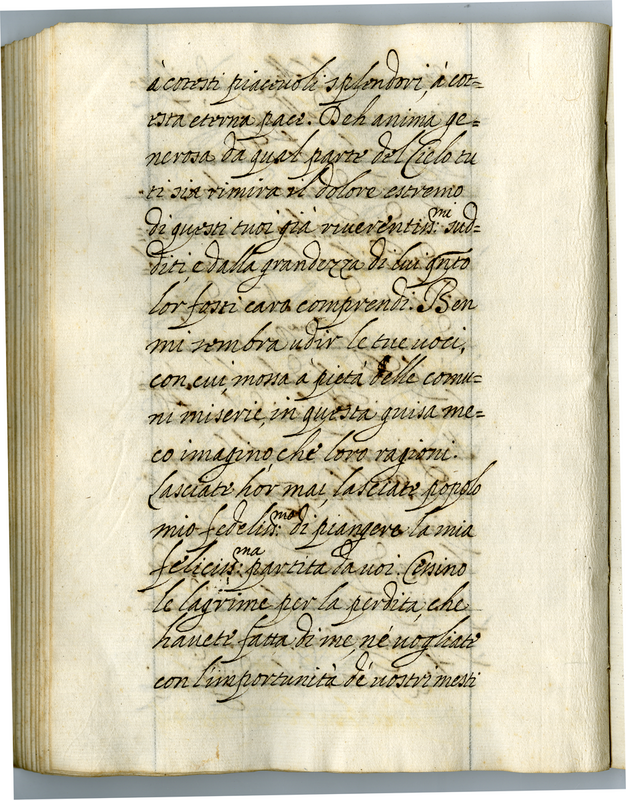 à cotesti piacevoli splendori, à cot=
esta eterna pace. Deh anima ge=
nerosa da qual parte del Cielo tu
ti sia rimira il dolore estremo
di questi tuoi già riverentiss:mi sud=
diti, e dalla grandezza di lui qnto
lor fosti cara comprendi. Ben
mi sembra udir le tue voci,
con cui mossa à pietà delle comu=
ni miserie, in questa guisa me=
co imagino che loro ragioni.
Lasciate hor mai, lasciate popolo
mio fedeliss:mo di piangere la mia
feliciss:ma partita da voi. Cessino
le lagrime per la perdita, che
havete fatta di me, nè vogliate
con l'importunità de' vostri mesti